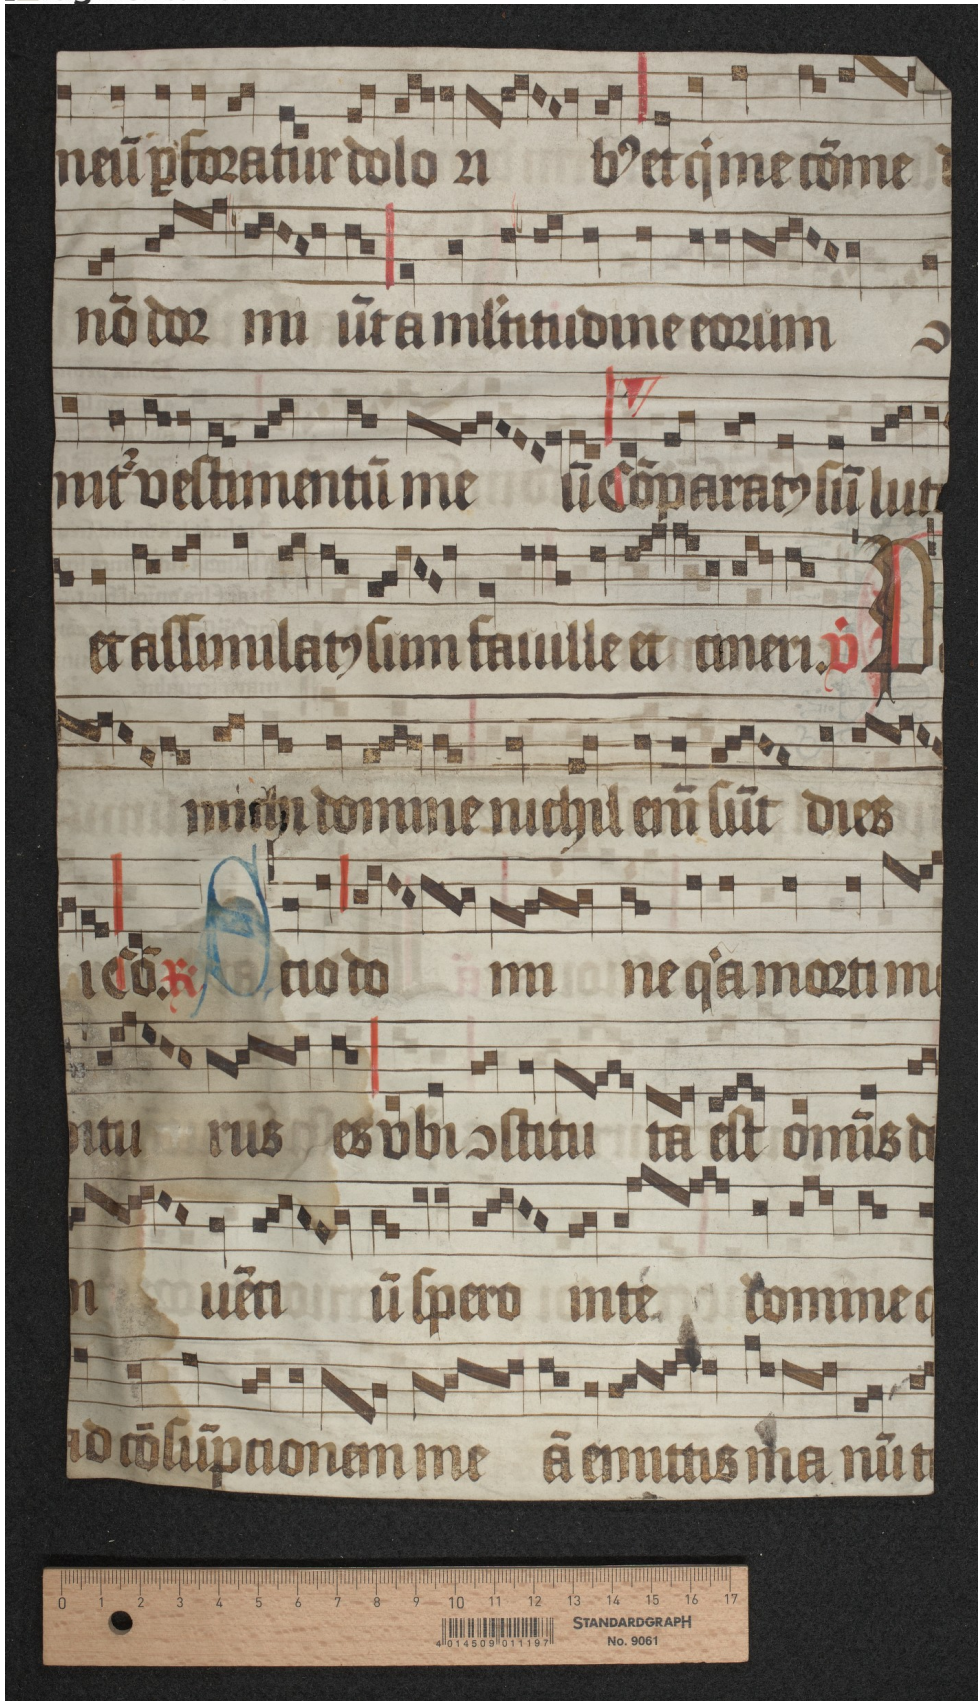 neū ꝑforatur dolo ri bꝰ et qͥ me cōme
nō dor mi ūt a ml̄titudine eorum
mit᷑ vestimentū me ū Cōparatꝰ sū lut
et assimilatꝰ sum fauille et cineri. v̇ P
michi domine nichil em̄ sūt dies
i Cō. ℟ S cio do mi ne qͥa morti me
ditu rus es vbi ↄstitu ta est om̄is do
n uēti ū spero in te domine q
ad cōsūptionem me ā emittis ma nū t
0 1 2 3 4 5 6 7 8 9 10 11 12 13 14 15 16 17
STANDARDGRAPH
No. 9061
4 014509 011197